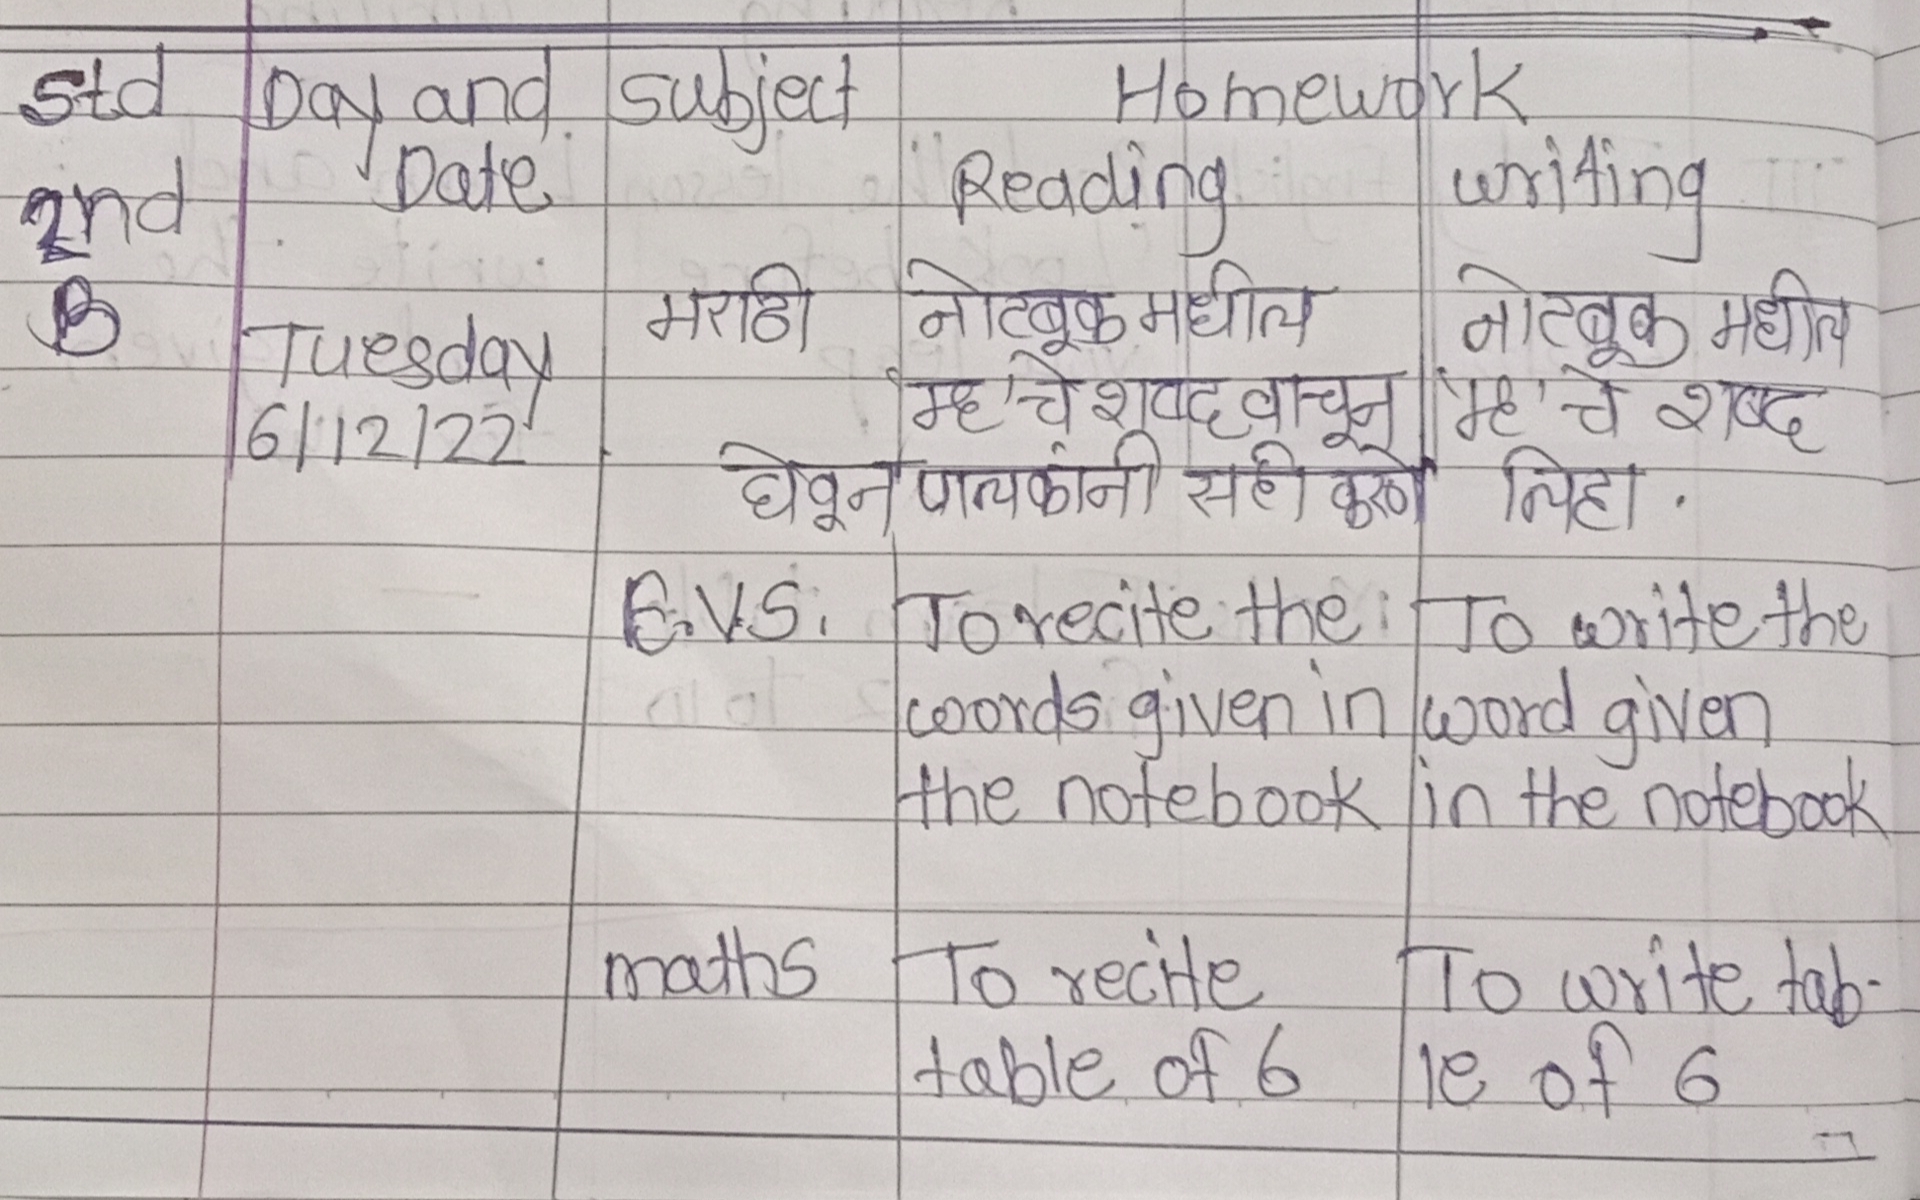 Std Day and Subject Homework
2nd Date Reading writing
B Tuesday मराठी नोटबूक मधील नोटबूक मधील
6/12/22 'म्ह' चे शब्द वाचून 'म्ह' चे शब्द
घेवून पालकांनी सही करणे लिहा.
E.V.S. To recite the To write the
words given in word given
the notebook in the notebook
maths To recite To write tab-
table of 6 le of 6